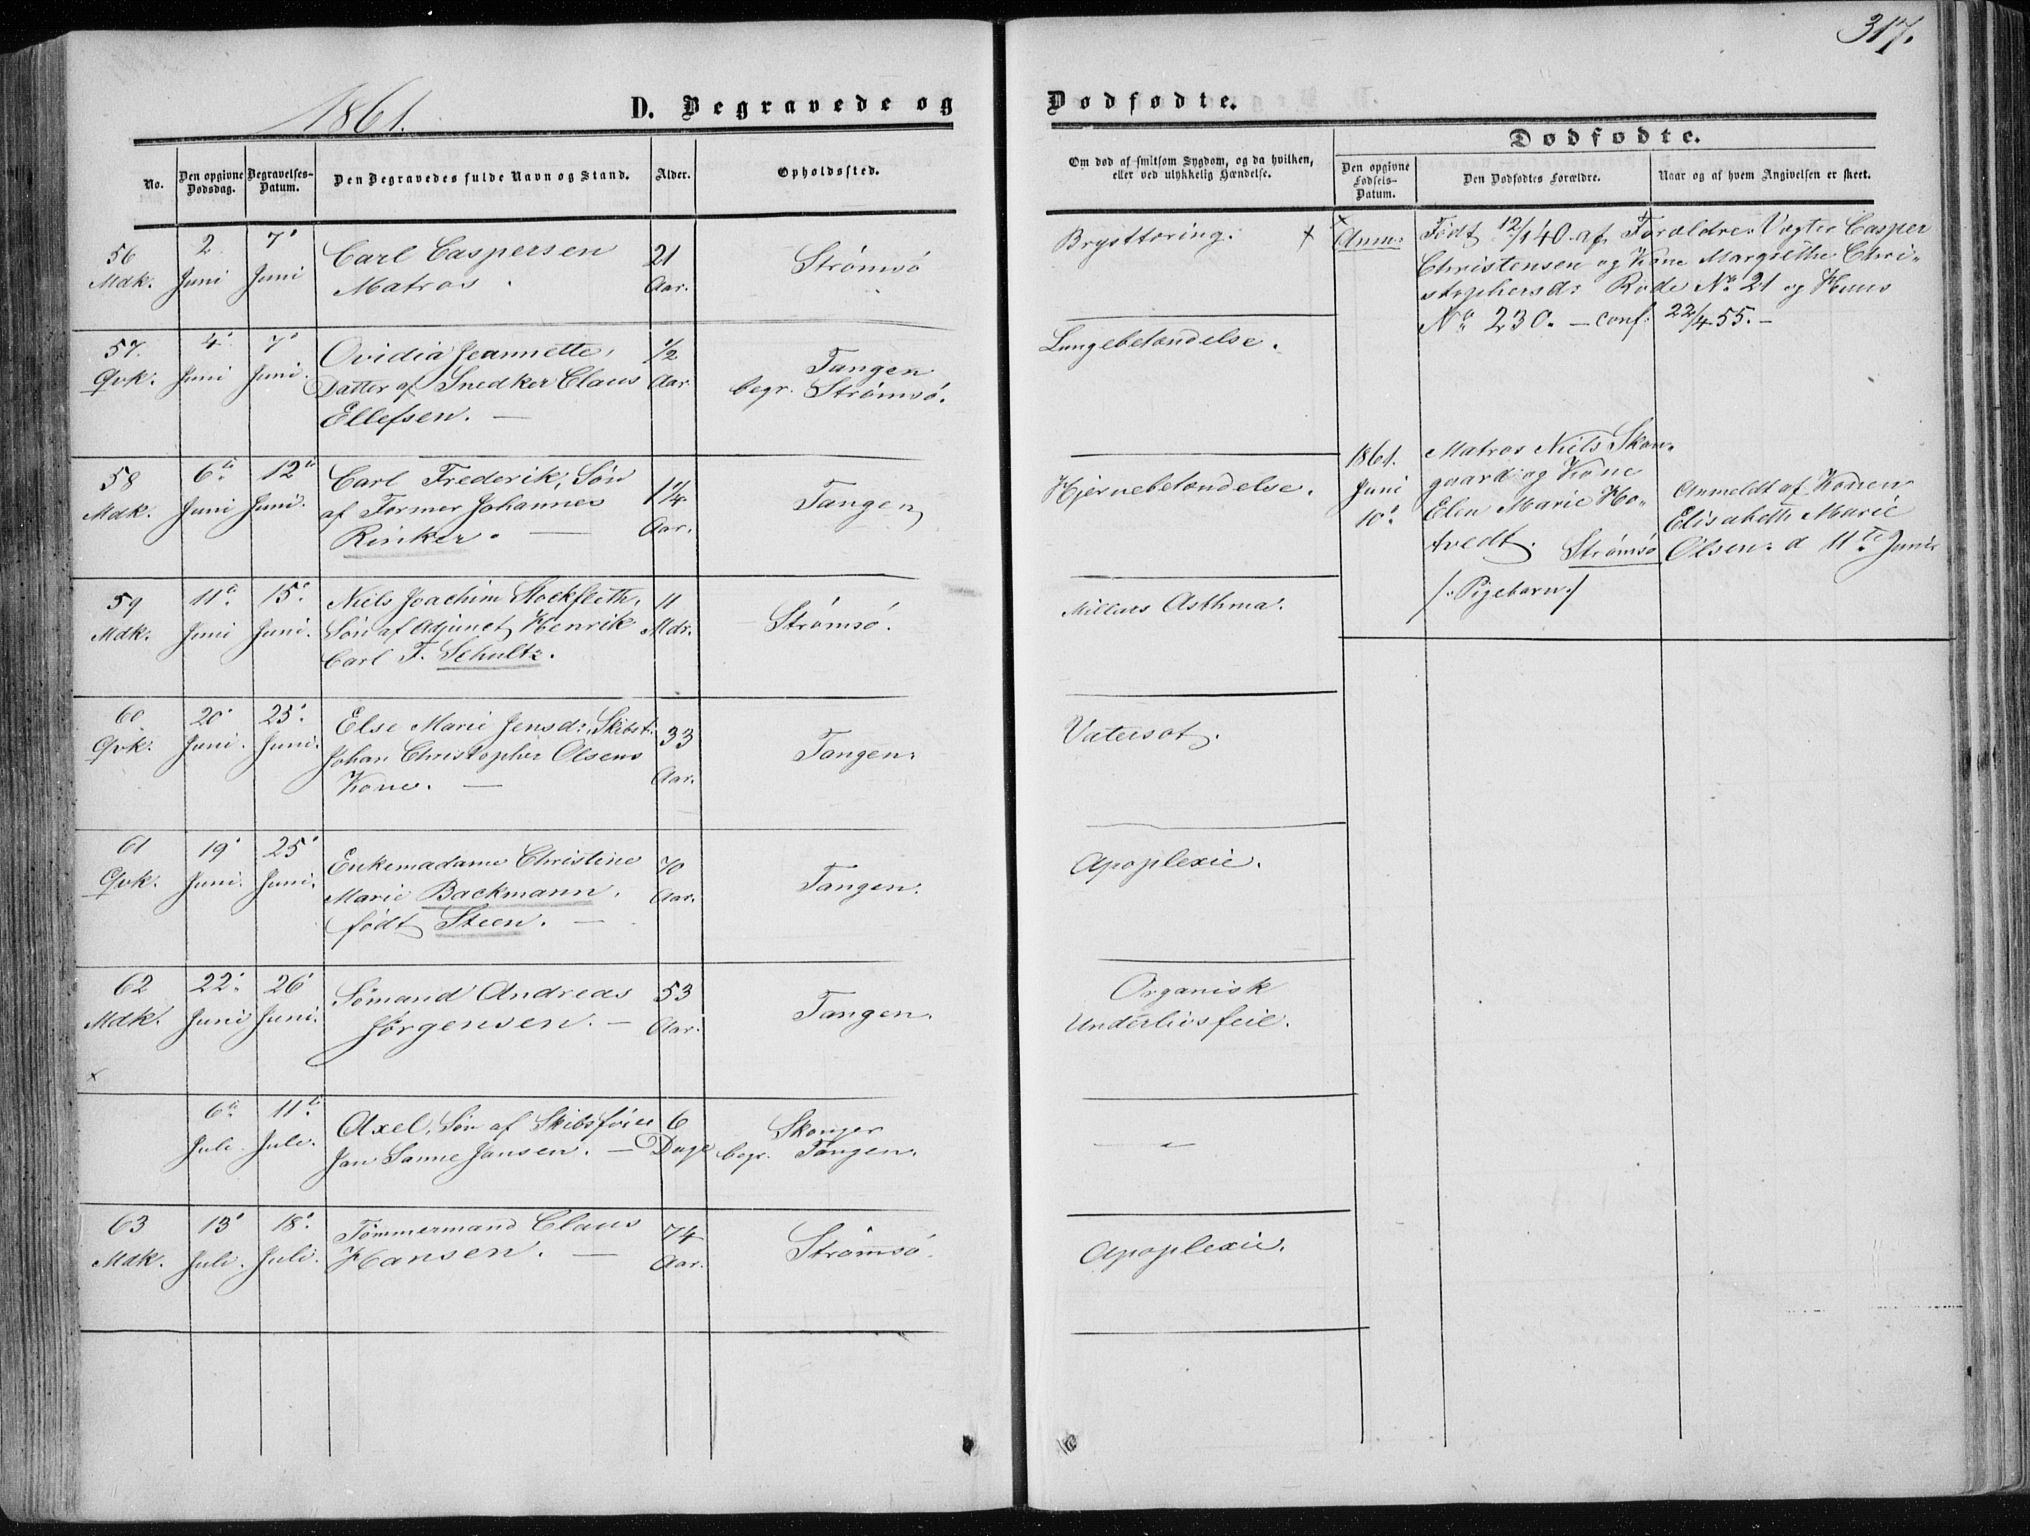 317.
1861.
D. Begravede og
Dødfødte.
No.
Den opgivne Dødsdag.
Begravelses-Datum.
Den Begravedes fulde Navn og Stand.
Alder.
Opholdssted.
Om død af smitsom Sygdom, og da hvilken, eller ved ulykkelig Hændelse.
Dødfødte.
Den opgivne Fødsels-Datum.
Den Dødfødtes Forældre.
Naar og af hvem Angivelsen er skeet.
56
Mdk.
2
Juni
7de
Juni
Carl Caspersen
Matros.
21
Aar.
Strømsö
Brysttæring. x
x
Anm:
Födt 12/1 40. af Forældre: Vægter Casper
Christensen og Kone Margrethe Chri-
stophersd: Rode No 21 og Huus
No 230. — conf. 22/4 55. —
57.
Qvk.
4de
Juni
7de
Juni.
Ovidia Jeannette,
Datter af Snedker Claus
Ellefsen. —
1/2
Aar.
Tangen
begr. Strømsö.
Lungebetændelse.
58
Mdk.
6te
Juni
12te
Juni.
Carl Frederik, Sön
af Former Johannes
Rinker. —
1 1/4
Aar.
Tangen
Hjernebetændelse.
1861.
Juni
10de
Matros Niels Skau-
gaard og Kone
Elen Marie Ho-
tvedt. Strømsö
/: Pigebarn :/
Anmeldt af Konen
Elisabeth Marie
Olsen. d 11te Juni
59
Mdk.
11te
Juni
15de
Juni.
Niels Joachim Stockfleth,
Sön af Adjunct Henrik
Carl F. Schultz.
11
Mdr.
Strømsö.
Millars Asthma.
60
Qvk.
20de
Juni.
25de
Juni.
Else Marie Jensd: Skibst:
Johan Christopher Olsens
Kone. —
33
Aar.
Tangen.
Vatersot.
61
Qvk.
19de
Juni.
25de
Juni.
Enkemadame Christine
Marie Backmann,
født Steen. —
70
Aar.
Tangen.
Apoplexie.
62
Mdk.
22de
Juni
26de
Juni.
Sömand Andreas
Jörgensen. —
53
Aar.
Tangen.
Organisk
Underlivsfeil.
x
6te
Juli.
11te
Juli.
Axel, Sön af Skibsförer
Jan Sanne Jansen. —
6
Dage
Skouger
begr. Tangen.
— " —
63
Mdk.
13de
Juli.
18de
Juli.
Tømmermand Claus
Hansen. —
74
Aar.
Strømsö.
Apoplexie.